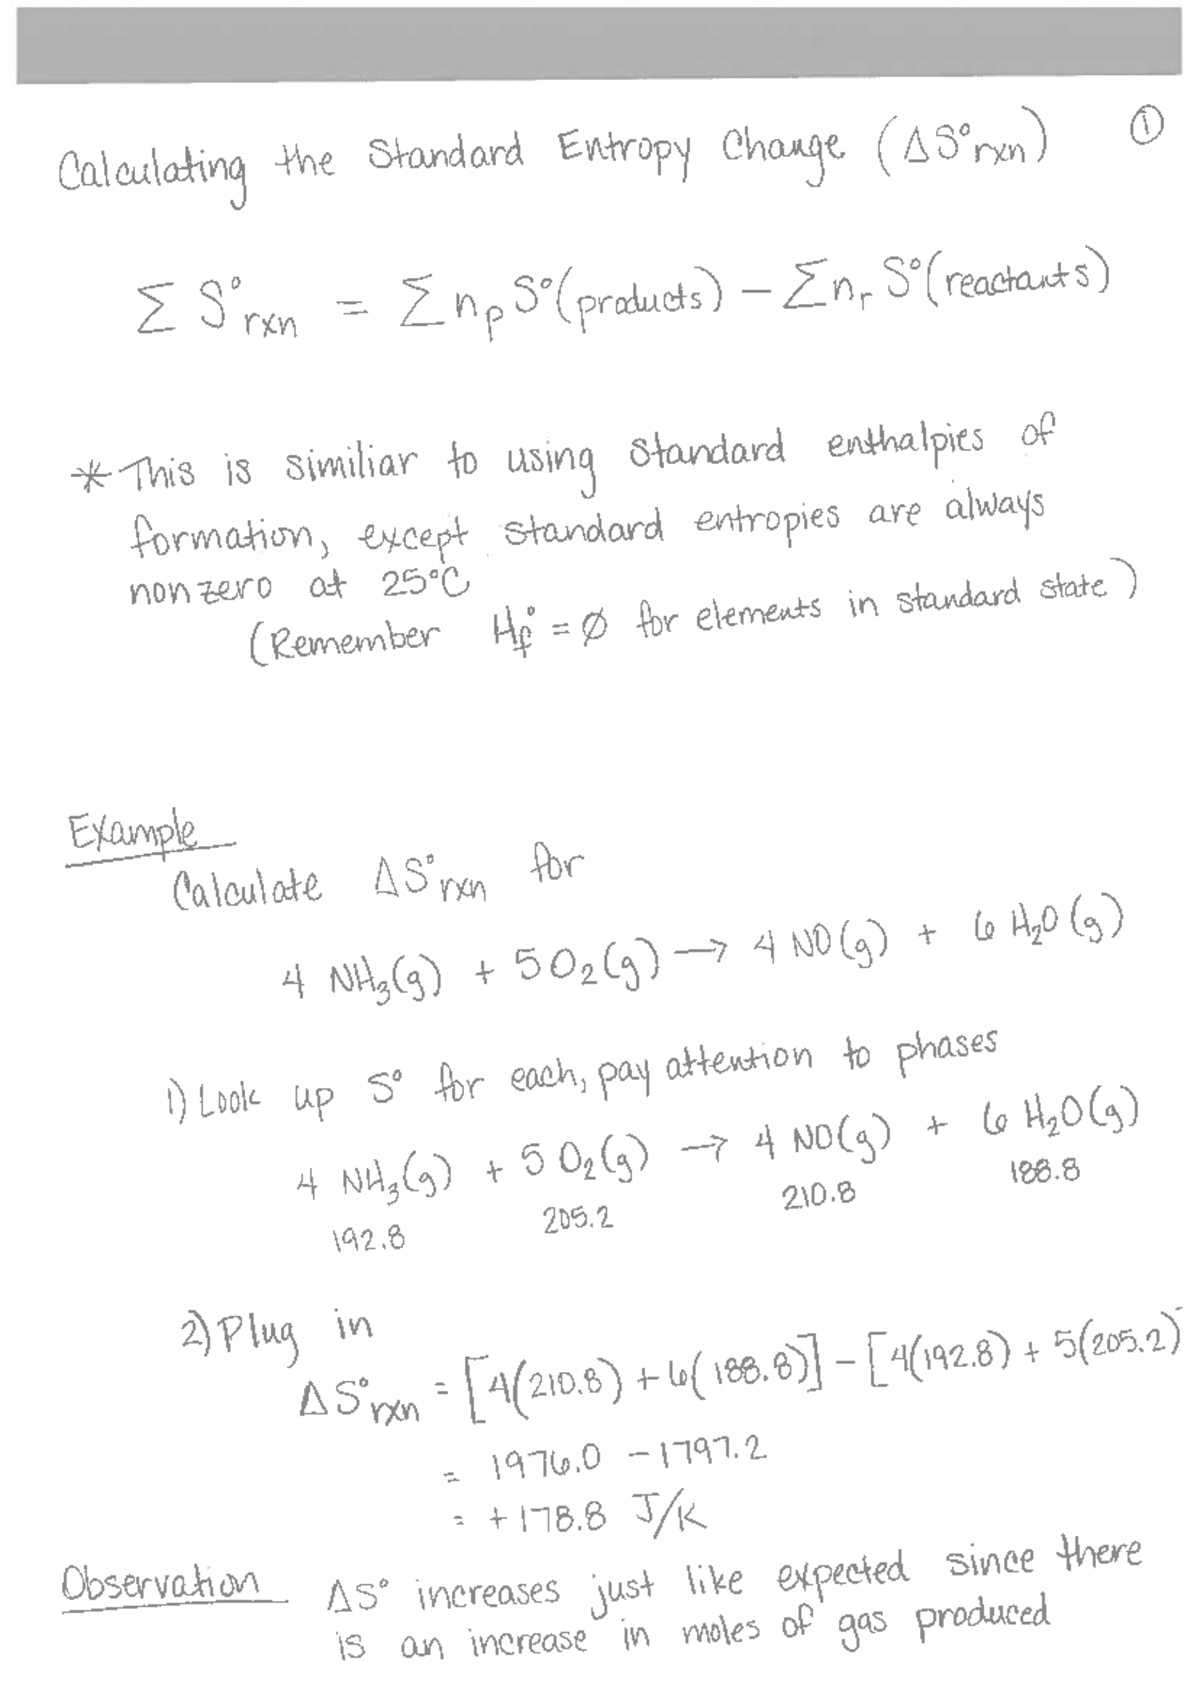 Calculating the Standard Entropy Change (ΔS°rxn) ①
Σ S°rxn = Σ npS°(products) – Σnr S°(reactants)
* This is similiar to using standard enthalpies of
formation, except standard entropies are always
nonzero at 25°C
(Remember Hf° = ∅ for elements in standard state)
Example
Calculate ΔS°rxn for
4 NH3(g) + 5 O2(g) → 4 NO(g) + 6 H2O(g)
1) Look up S° for each, pay attention to phases
4 NH3(g) + 5 O2(g) → 4 NO(g) + 6 H2O(g)
192.8 205.2 210.8 188.8
2) Plug in
ΔS°rxn = [4(210.8) + 6(188.8)] – [4(192.8) + 5(205.2)
= 1976.0 – 1797.2
= +178.8 J/K
Observation ΔS° increases just like expected since there
is an increase in moles of gas produced